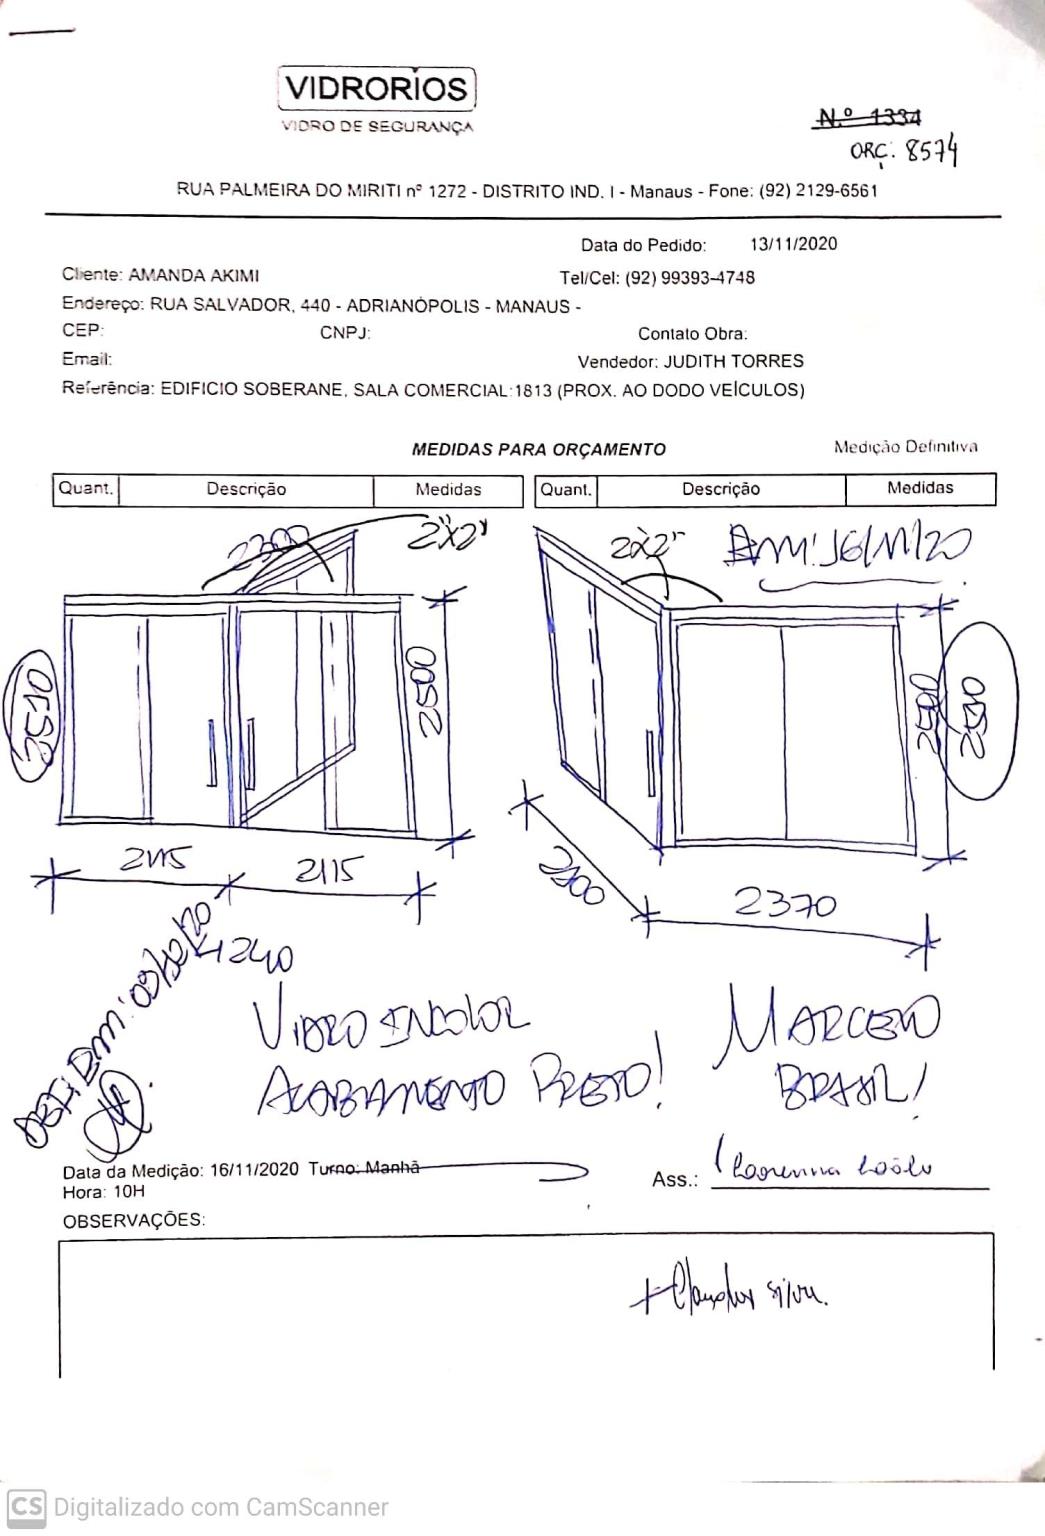 VIDRORIOS
VIDRO DE SEGURANÇA
N.º 1334
ORÇ: 8574
RUA PALMEIRA DO MIRITI nº 1272 - DISTRITO IND. I - Manaus - Fone: (92) 2129-6561
Data do Pedido: 13/11/2020
Cliente: AMANDA AKIMI Tel/Cel: (92) 99393-4748
Endereço: RUA SALVADOR, 440 - ADRIANÓPOLIS - MANAUS -
CEP: CNPJ: Contato Obra:
Email: Vendedor: JUDITH TORRES
Referência: EDIFICIO SOBERANE, SALA COMERCIAL:1813 (PROX. AO DODO VEÍCULOS)
MEDIDAS PARA ORÇAMENTO Medição Definitiva
Quant. Descrição Medidas Quant. Descrição Medidas
2300 2"x2" 2x2" 16/11/20
2500
2500
2115 2115
2370
4240
VIDRO INCOLOR
ACABAMENTO PRETO!
MARCELO
BRASIL!
Data da Medição: 16/11/2020 Turno: Manhã
Hora: 10H
Ass.:
OBSERVAÇÕES:
Silva.
CS Digitalizado com CamScanner